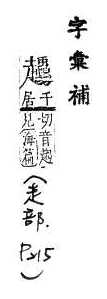 字彙補
千居切音見海篇
（走部.
P.215）